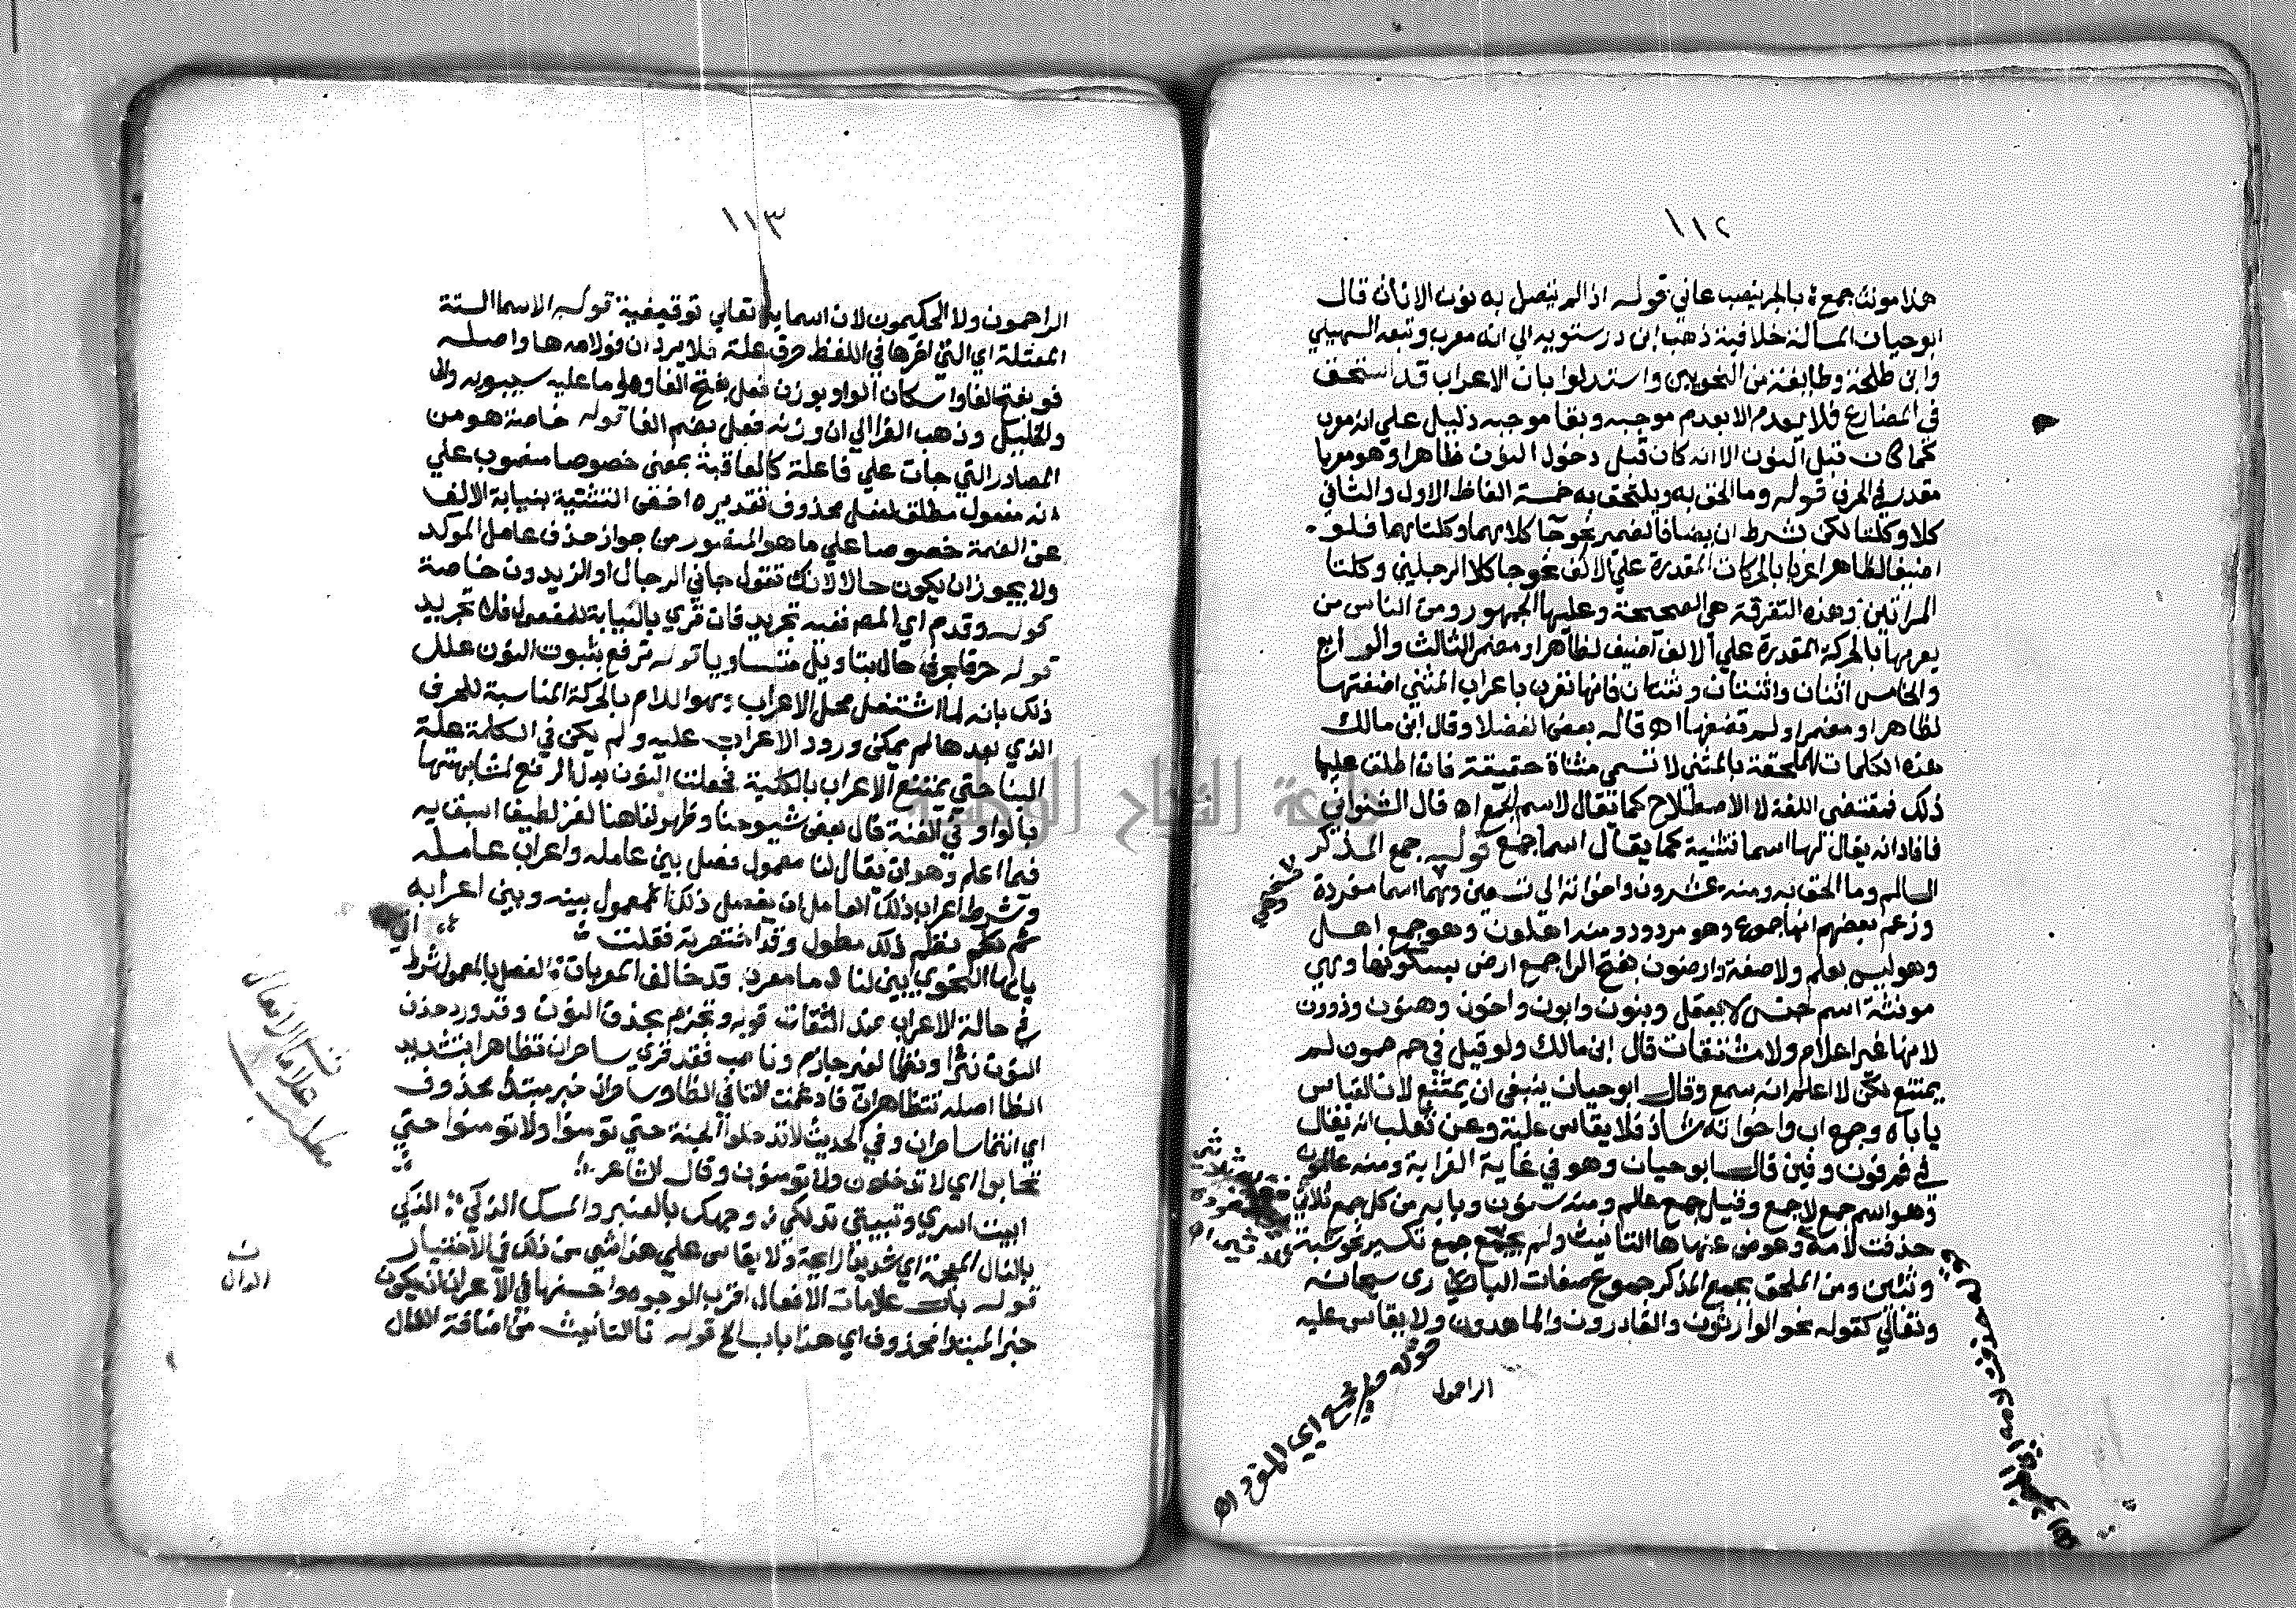 ١١٢
هذا مونث جمع ة بالجر ينصب عاني قوله اذا لم يتصل به نون الاناث قال
ابو حيان المسالة خلافية ذهب ابن درستويه الي انه معرب وتبعه السهيلي
وابن طلحة وطايفة من النحويين واستدلوا بان الاعراب قد استحق
في المضارع فلا يعدم الا بعدم موجبه وبقا موجبه دليل علي انه معرب
كما كان قبل النون الا انه كان قبل دخول النون ظاهرا وهو معربا
مقدر في الحرف قوله وما الحق به ويلتحق به خمسة الفاظ الاول والثاني
كلا وكلتا لكن بشرط ان يضافا لضمير نحو جا كلاهما وكلتاهما فلو
اضيفا لظاهر اعربا بالحركات المقدرة علي الالف نحو جا كلا الرجلين وكلتا
المراتين وهذه التفرقة هي الصحيحة وعليها الجمهور ومن الناس من
يعربها بالحركة المقدرة علي الالف اضيف لظاهر او مضمر الثالث والرابع
والخامس اثنان واثنتان وثنتان فانها تعرب باعراب المثني اضفتها
لظاهر او مضمر او لم تضفها اه قاله بعض الفضلا وقال ابن مالك
هذه الكلمات الملحقة بالمثني لا تسمي مثناة حقيقة فان اطلق عليها
ذلك فمقتضي اللغة لا الاصطلاح كما يقال لاسم الجمع اه قال الشنواني
فافاد انه يقال لها اسما تثنية كما يقال اسما جمع قوله جمع المذكر
السالم وما الحق به ومنه عشرون واخواته الي تسعين وهما اسما مفردة
وزعم بعضهم انها جموع وهو مردود ومنه اهلون وهو جمع اهل
وهو ليس بعلم ولا صفة وارضون بفتح الرا جمع ارض بسكونها وهي
مونثة اسم جنس لا يعقل وبنون وابون واخون وهنون وذوون
لانها غير اعلام ولا مشتقات قال ابن مالك ولو قيل في حم حمون لم
يمتنع لكن لا اعلم انه سمع وقال ابو حيان ينبغي ان يمتنع لان القياس
ياباه وجمع اب واخواته شاذ فلا يقاس عليه وعن ثعلب انه يقال
في فم فون وفين قال ابو حيان وهو في غاية الغرابة ومنه عالمون
وهو اسم جمع لا جمع وقيل جمع عالم ومنه سنون وبابه من كل جمع ثلاثي
حذفت لامه وعوض عنها ها التانيث ولم يجمع جمع تكسير نحو ثبة
وثبين ومن الملحق بجمع المذكر جموع صفات الباري سبحانه
وتعالي كقوله نحو الوارثون والقادرون والماهدون ولا يقاس عليه
الراحمون
قوله ولم يجمع اي المفرد اه
١١٣
الراحمون ولا الحكيمون لان اسمايه تعالي توقيفية قوله الاسما الستة
المعتلة اي التي اخرها في اللفظ حرف علة فلا يرد ان فو لامه ها واصله
فو بفتح الفا واسكان الواو بوزن فعل بفتح الفا وهو ما عليه سيبويه والي
والخليل وذهب الفرا الي ان وزنه فعل بضم الفا قوله خاصة هو من
المصادر التي جات علي فاعلة كالعاقبة بمعني خصوصا منصوب علي
انه مفعول مطلق لفعل محذوف تقديره اخص التثنية بنيابة الالف
عن الضمة خصوصا علي ما هو المنصور من جواز حذف عامل الموكد
ولا يجوز ان يكون حالا لانك تقول جاني الرجال او الزيدون خاصة
قوله وقدم اي المص ففيه تجريد فان قري بالنيابة للمفعول فلا تجريد
قوله حرفا حرفا حال بتاويل متساويا قوله ترفع بثبوت النون علل
ذلك بانه لما اشتغل محل الاعراب وهو اللام بالحركة المناسبة للحرف
الذي بعدها لم يمكن ورود الاعراب عليه ولم يكن في الكلمة علة
البنا حتي يمتنع الاعراب بالكلية فجعلت النون بدل الرفع لمشابهتها
بالواو في الغنة قال بعض شيوخنا وظهر لنا هنا لغز لطيف اسبق به
فيما اعلم وهو ان يقال لنا معمول فصل بين عامله واعراب عامله
وشرط اعراب ذلك العامل ان يفصل ذلك المعمول بينه وبين اعرابه
ثم نظم ذلك مطول وقد اختصرته فقلت
يا ايها النحوي بين لنا ما معرب قد خالف المعربات الفصل بالمعمول شرط
في حالة الاعراب عند الثقات قوله وتجزم بحذف النون وقد ورد حذف
النون نثرا ونظما لغير جازم وناصب فقد قري ساحران تظاهرا بتشديد
الظا اصله تتظاهران فادغمت التا في الظا وساحران خبر مبتدا محذوف
اي انتما ساحران وفي الحديث لا تدخلوا الجنة حتي تومنوا ولا تومنوا حتي
تحابوا اي لا تدخلون ولا تومنون وقال الشاعر
ابيت اسري وتبيتي تدلكي وجهك بالعنبر والمسك الذكي الذكي
بالذال المعجمة اي شديد الرايحة ولا يقاس علي هذا شي من ذلك في الاختيار
قوله باب علامات الافعال اقرب الوجوه واحسنها في الاعراب ان يكون
خبر المبتدا محذوف اي هذا باب الخ قوله تا التانيث من اضافة الدال
باب علامات الافعال
الدال